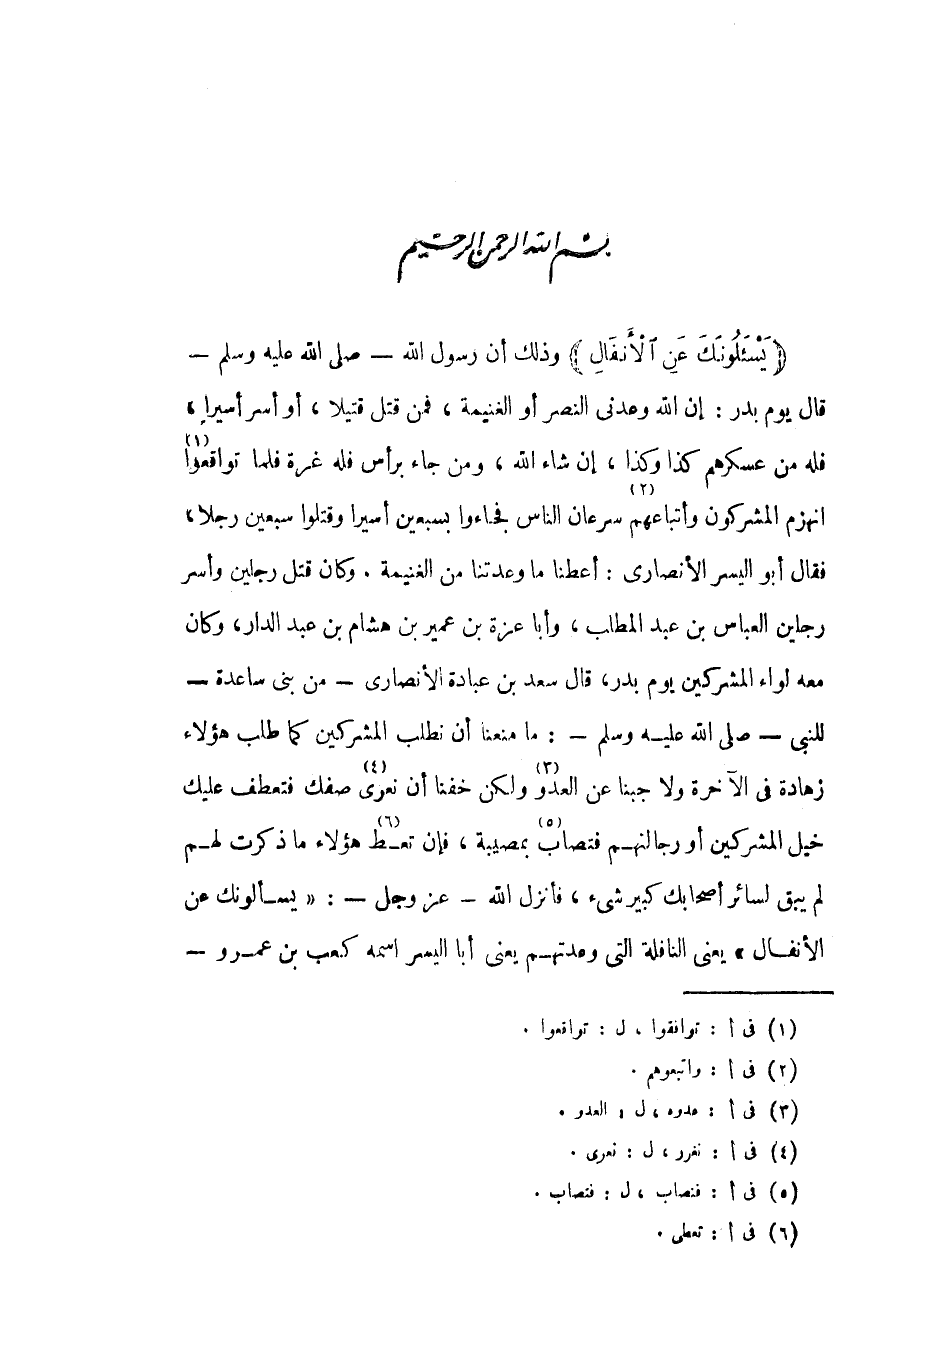 بسم الله الرحمن الرحيم
﴿يَسْئَلُونَكَ عَنِ ٱلْأَنفَالِ﴾ وذلك أن رسول الله — صلى الله عليه وسلم —
قال يوم بدر : إن الله وعدنى النصر أو الغنيمة ، فمن قتل قتيلا ، أو أسر أسيرا ،
فله من عسكرهم كذا وكذا ، إن شاء الله ، ومن جاء برأس فله غرة فلما تواقعوا (١)
انهزم المشركون وأتباعهم (٢) سرعان الناس فجاءوا بسبعين أسيرا وقتلوا سبعين رجلا ،
فقال أبو اليسر الأنصارى : أعطنا ما وعدتنا من الغنيمة . وكان قتل رجلين وأسر
رجلين العباس بن عبد المطلب ، وأبا عزة بن عمير بن هشام بن عبد الدار ، وكان
معه لواء المشركين يوم بدر ، قال سعد بن عبادة الأنصارى — من بنى ساعدة —
للنبى — صلى الله عليه وسلم — : ما منعنا أن نطلب المشركين كما طلب هؤلاء
زهادة فى الآخرة ولا جبنا عن العدو (٣) ولكن خفنا أن نعرى (٤) صفك فتعطف عليك
خيل المشركين أو رجالهم فتصاب (٥) بمصيبة ، فإن تعط (٦) هؤلاء ما ذكرت لهم
لم يبق لسائر أصحابك كبير شىء ، فأنزل الله — عز وجل — : « يسألونك عن
الأنفال » يعنى النافلة التى وعدتهم يعنى أبا اليسر اسمه كعب بن عمرو —
(١) فى أ : توافقوا ، ل : تواقعوا .
(٢) فى أ : واتبعوهم .
(٣) فى أ : عدوه ، ل : العدو .
(٤) فى أ : نغرر ، ل : نعرى .
(٥) فى أ : فنصاب ، ل : فتصاب .
(٦) فى أ : تعطى .